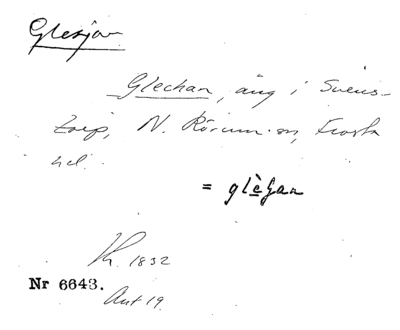 Glesjan
Glechan, äng i Svens-
torp, N. Rörum sn, Frosta
hd.
= glèʃan
Ch. 1832
Nr 6643.
Ant 19.